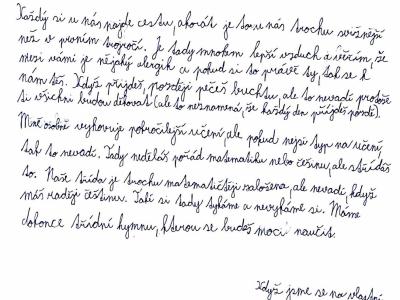 Každý si u nás najde cestu, akorát je to u nás trochu svižnější
než v prvním trojročí. Je tady mnohem lepší vzduch a věřím, že
mezi vámi je nějaký alergik a pokud si to právě ty, tak se k
nám těš. Když přijdeš, později pečeš buchtu, ale to nevadí protože
si všichni budou děkovat (ale to neznamená, že každý den přijdeš pozdě).
Mně osobně vyhovuje pokročilejší učení, ale pokud nejsi typ na učení,
tak to nevadí. Tady neděláš pořád matematiku nebo češtinu, ale střídáš
to. Naše třída je trochu matematičtěji založena, ale nevadí, když
máš raději češtinu. Taky si tady tykáme a nevykáme si. Máme
dokonce třídní hymnu, kterou se budeš moci naučit.
Když jsme se na vlastní